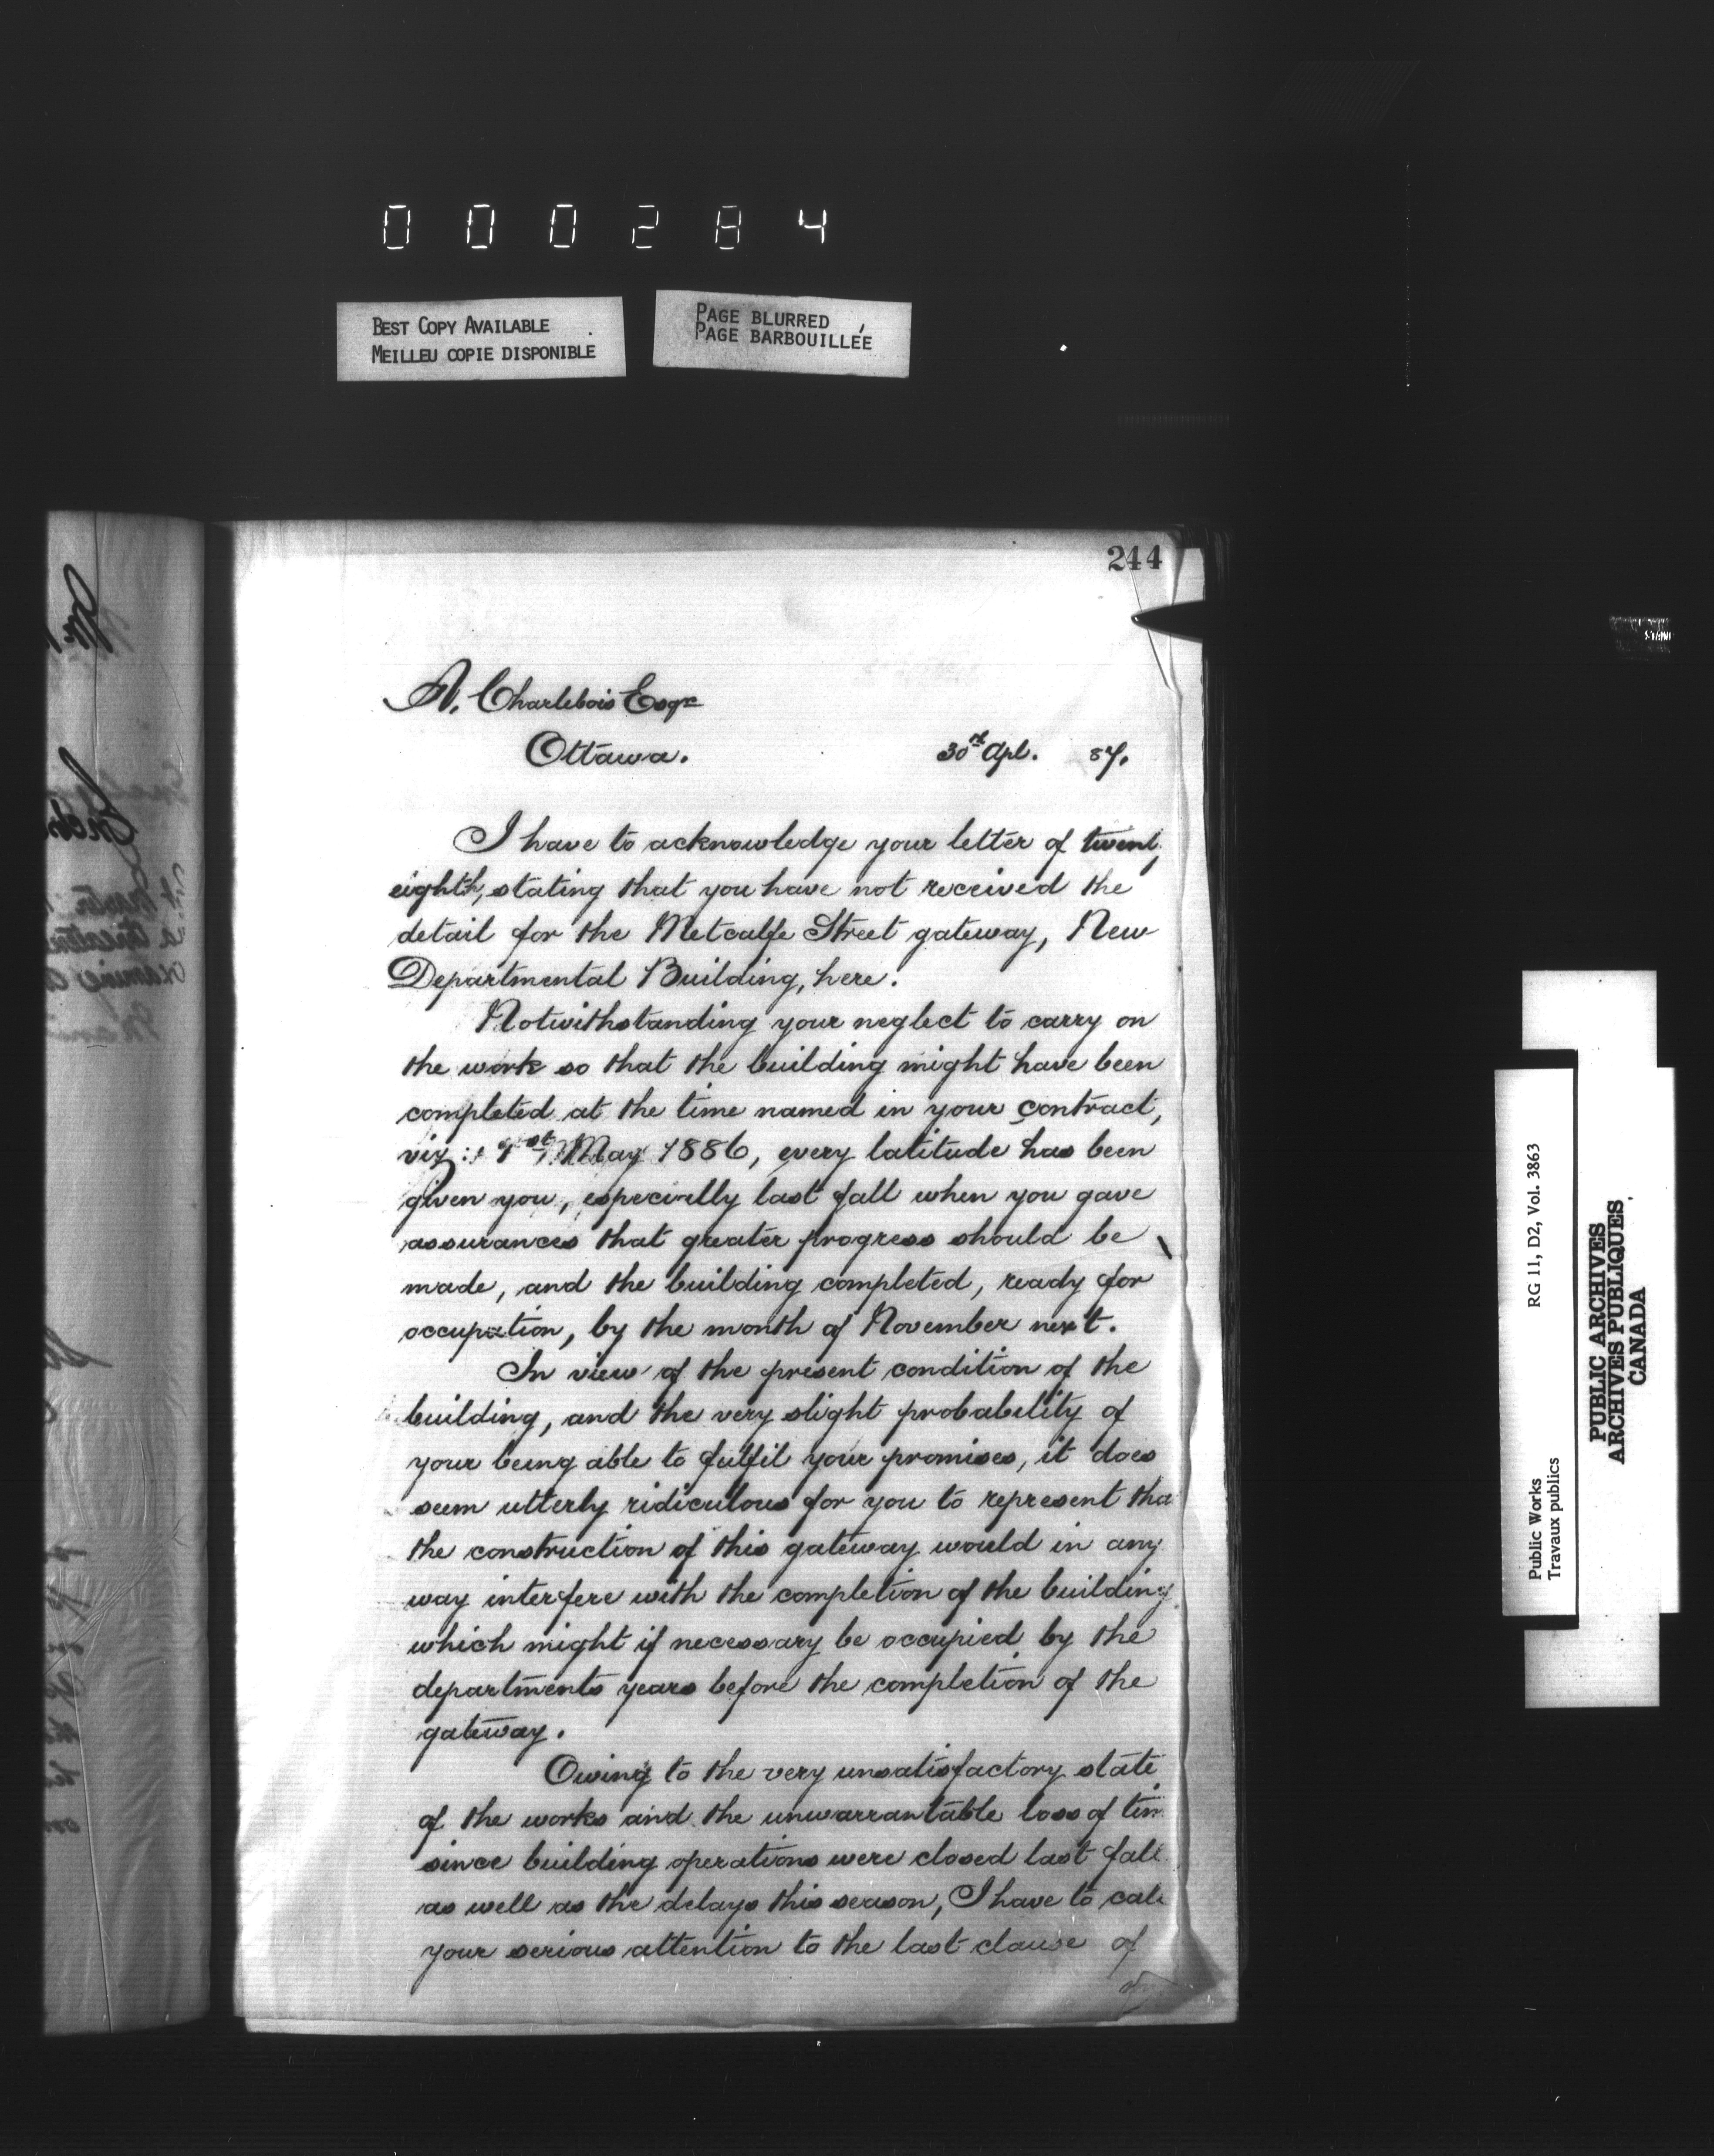 000284
BEST COPY AVAILABLE
MEILLEU COPIE DISPONIBLE
PAGE BLURRED
PAGE BARBOUILLÉE
244
A. Charlebois Esqre
Ottawa. 30th Apl. 87.
I have to acknowledge your letter of twent
eighth, stating that you have not received the
detail for the Metcalfe Street gateway, New
Departmental Building, here.
Notwithstanding your neglect to carry on
the work so that the building might have been
completed at the time named in your contract,
viz: 1st May 1886, every latitude has been
given you, especially last fall when you gave
assurances that greater progress should be
made, and the building completed, ready for
occupation, by the month of November next.
In view of the present condition of the
building, and the very slight probability of
your being able to fulfil your promises, it does
seem utterly ridiculous for you to represent tha
the construction of this gateway would in any
way interfere with the completion of the building
which might if necessary be occupied by the
departments years before the completion of the
gateway.
Owing to the very unsatisfactory state
of the works and the unwarrantable loss of tim
since building operations were closed last fall
as well as the delays this season, I have to call
your serious attention to the last clause of
RG 11, D2, Vol. 3863
Public Works
Travaux publics
PUBLIC ARCHIVES
ARCHIVES PUBLIQUES
CANADA